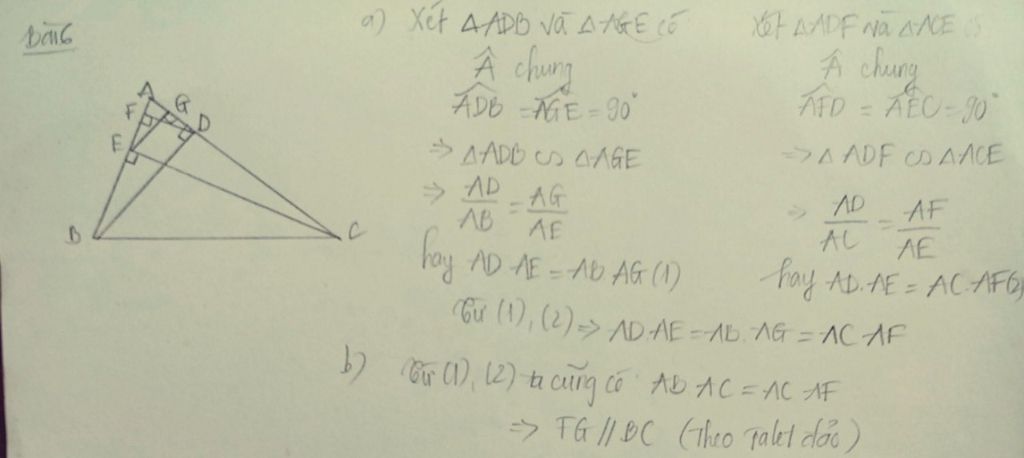 Bài 6
A
G
F
D
E
B
C
a) Xét ΔADB và ΔAGE có
Â chung
ADB = AGE = 90°
⇒ ΔADB ∽ ΔAGE
⇒ AD/AB = AG/AE
hay AD.AE = AB.AG (1)
Xét ΔADF và ΔACE có
Â chung
AFD = AEC = 90°
⇒ ΔADF ∽ ΔACE
⇒ AD/AC = AF/AE
hay AD.AE = AC.AF (2)
Từ (1), (2) ⇒ AD.AE = AB.AG = AC.AF
b) Từ (1), (2) ta cũng có AB AC = AC AF
⇒ FG // BC (Theo Talet đảo)